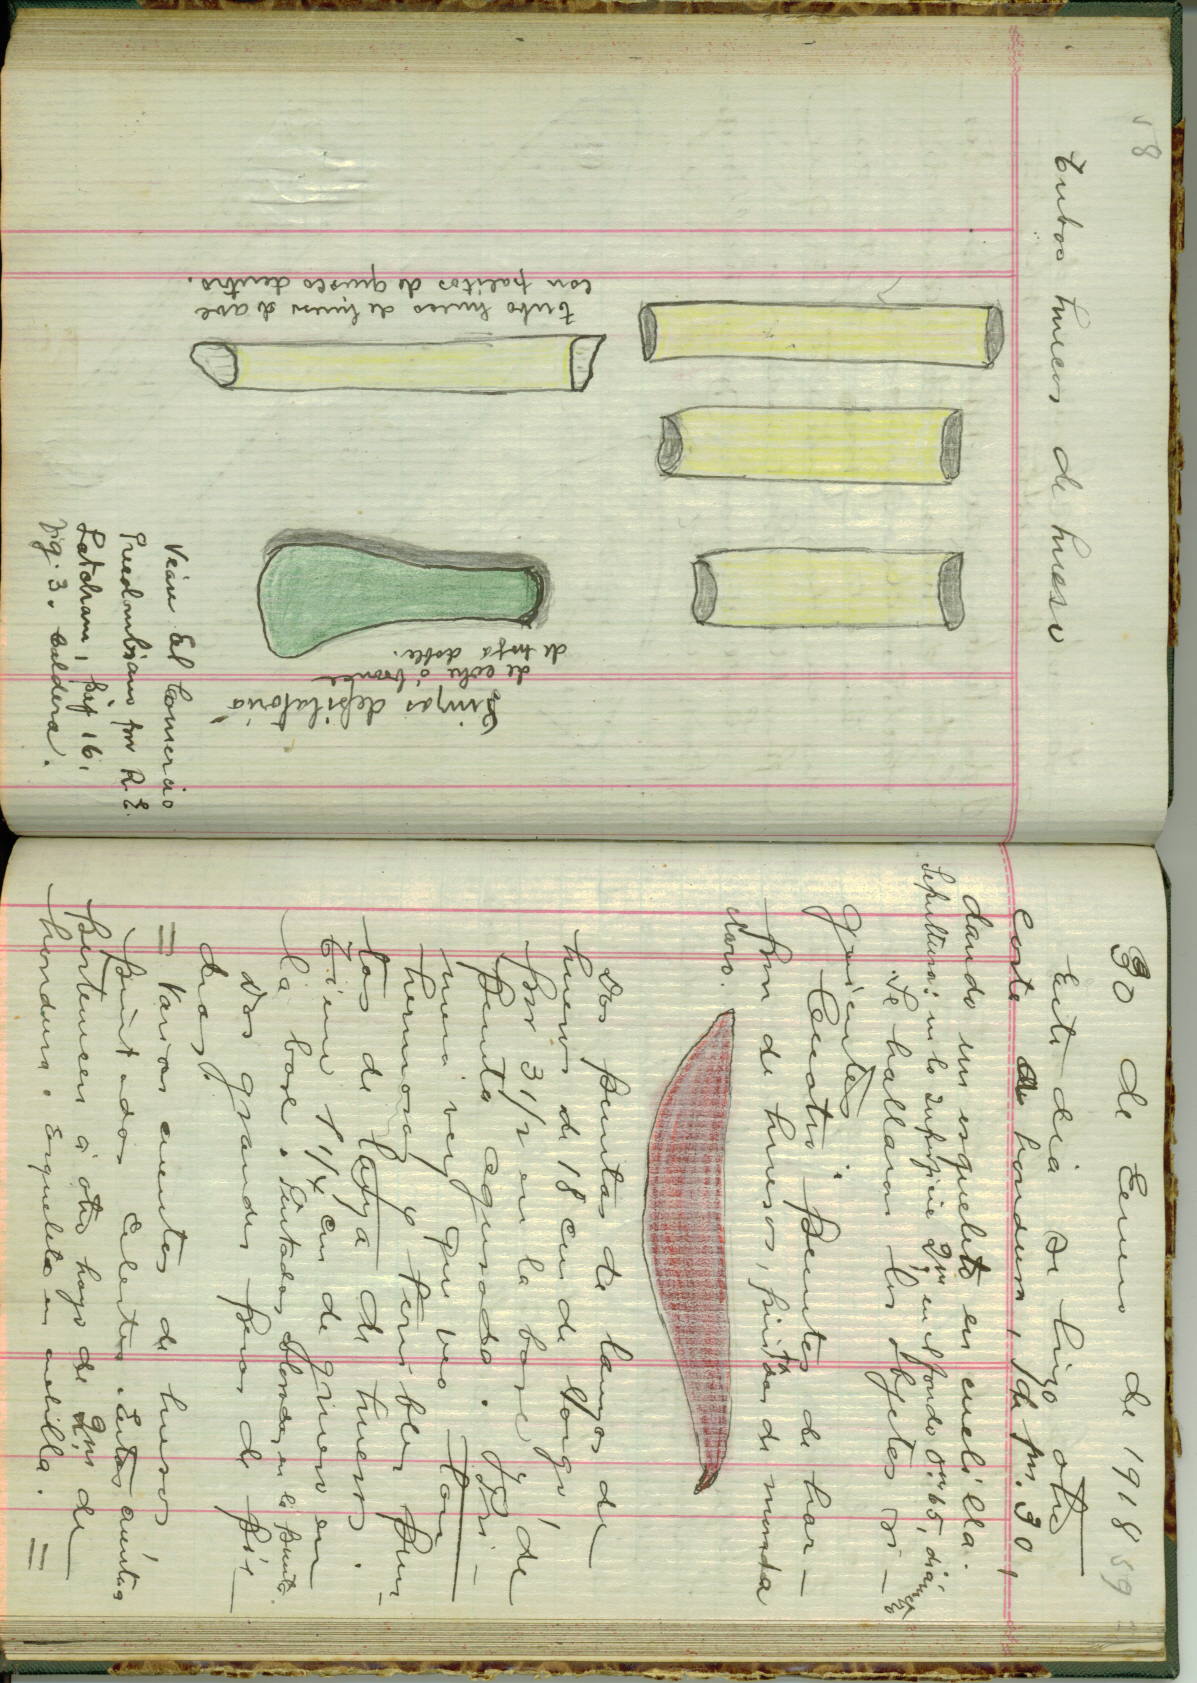 58
Tubos huecos de hueso
tubo hueco de hueso de ave
con palitos de quisco dentro.
Pinzas depilatoria
de cobre ó bronce
de hoja doble.
Véase El Comercio
Precolombiano por R. E.
Latcham, pág 16,
fig. 3. Caldera.
59
30 de Enero de 1918
Este dia se hizo otro
corte de hondura, 1 de pr. 30,
dando un esqueleto en cuclilla.
Sepultura: en la superficie 2m, en el fondo 0m.65, diámetro
Se hallaron los objetos si-
guientes:
Cuatro puntas de har-
pon de huesos, pintadas de morado
claro.
Dos puntas de lanzas de
hueso de 18 cm de largo,
por 3 1/2 en la base, de
punta aguzada. Pri-
mera vez que veo tan
hermosas y terribles pun-
tas de lanza de hueso.
Tiene 1 1/4 cm de grueso en
la base. Pintadas, blondas, en la punta.
Dos grandes pesas de pie-
dras.
= Varias cuentas de hueso
pintadas celestes. Estas cuentas
pertenecen á otro hoyo de 2m de
hondura. Esqueleto en cuclilla. =